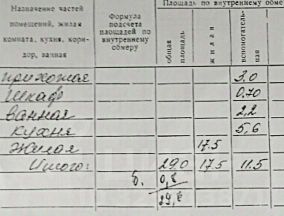 Назначение частей помещений, жилая комната, кухня, коридор, ванная
Формула подсчета площадей по внутреннему обмеру
Площадь по внутреннему обме
общая площадь
жилая
вспомогательная
прихожая 3.0
шкаф 0,70
ванная 2,2
кухня 5,6
жилая 17.5
Итого: 29.0 17.5 11.5
б. 0,8
29,8